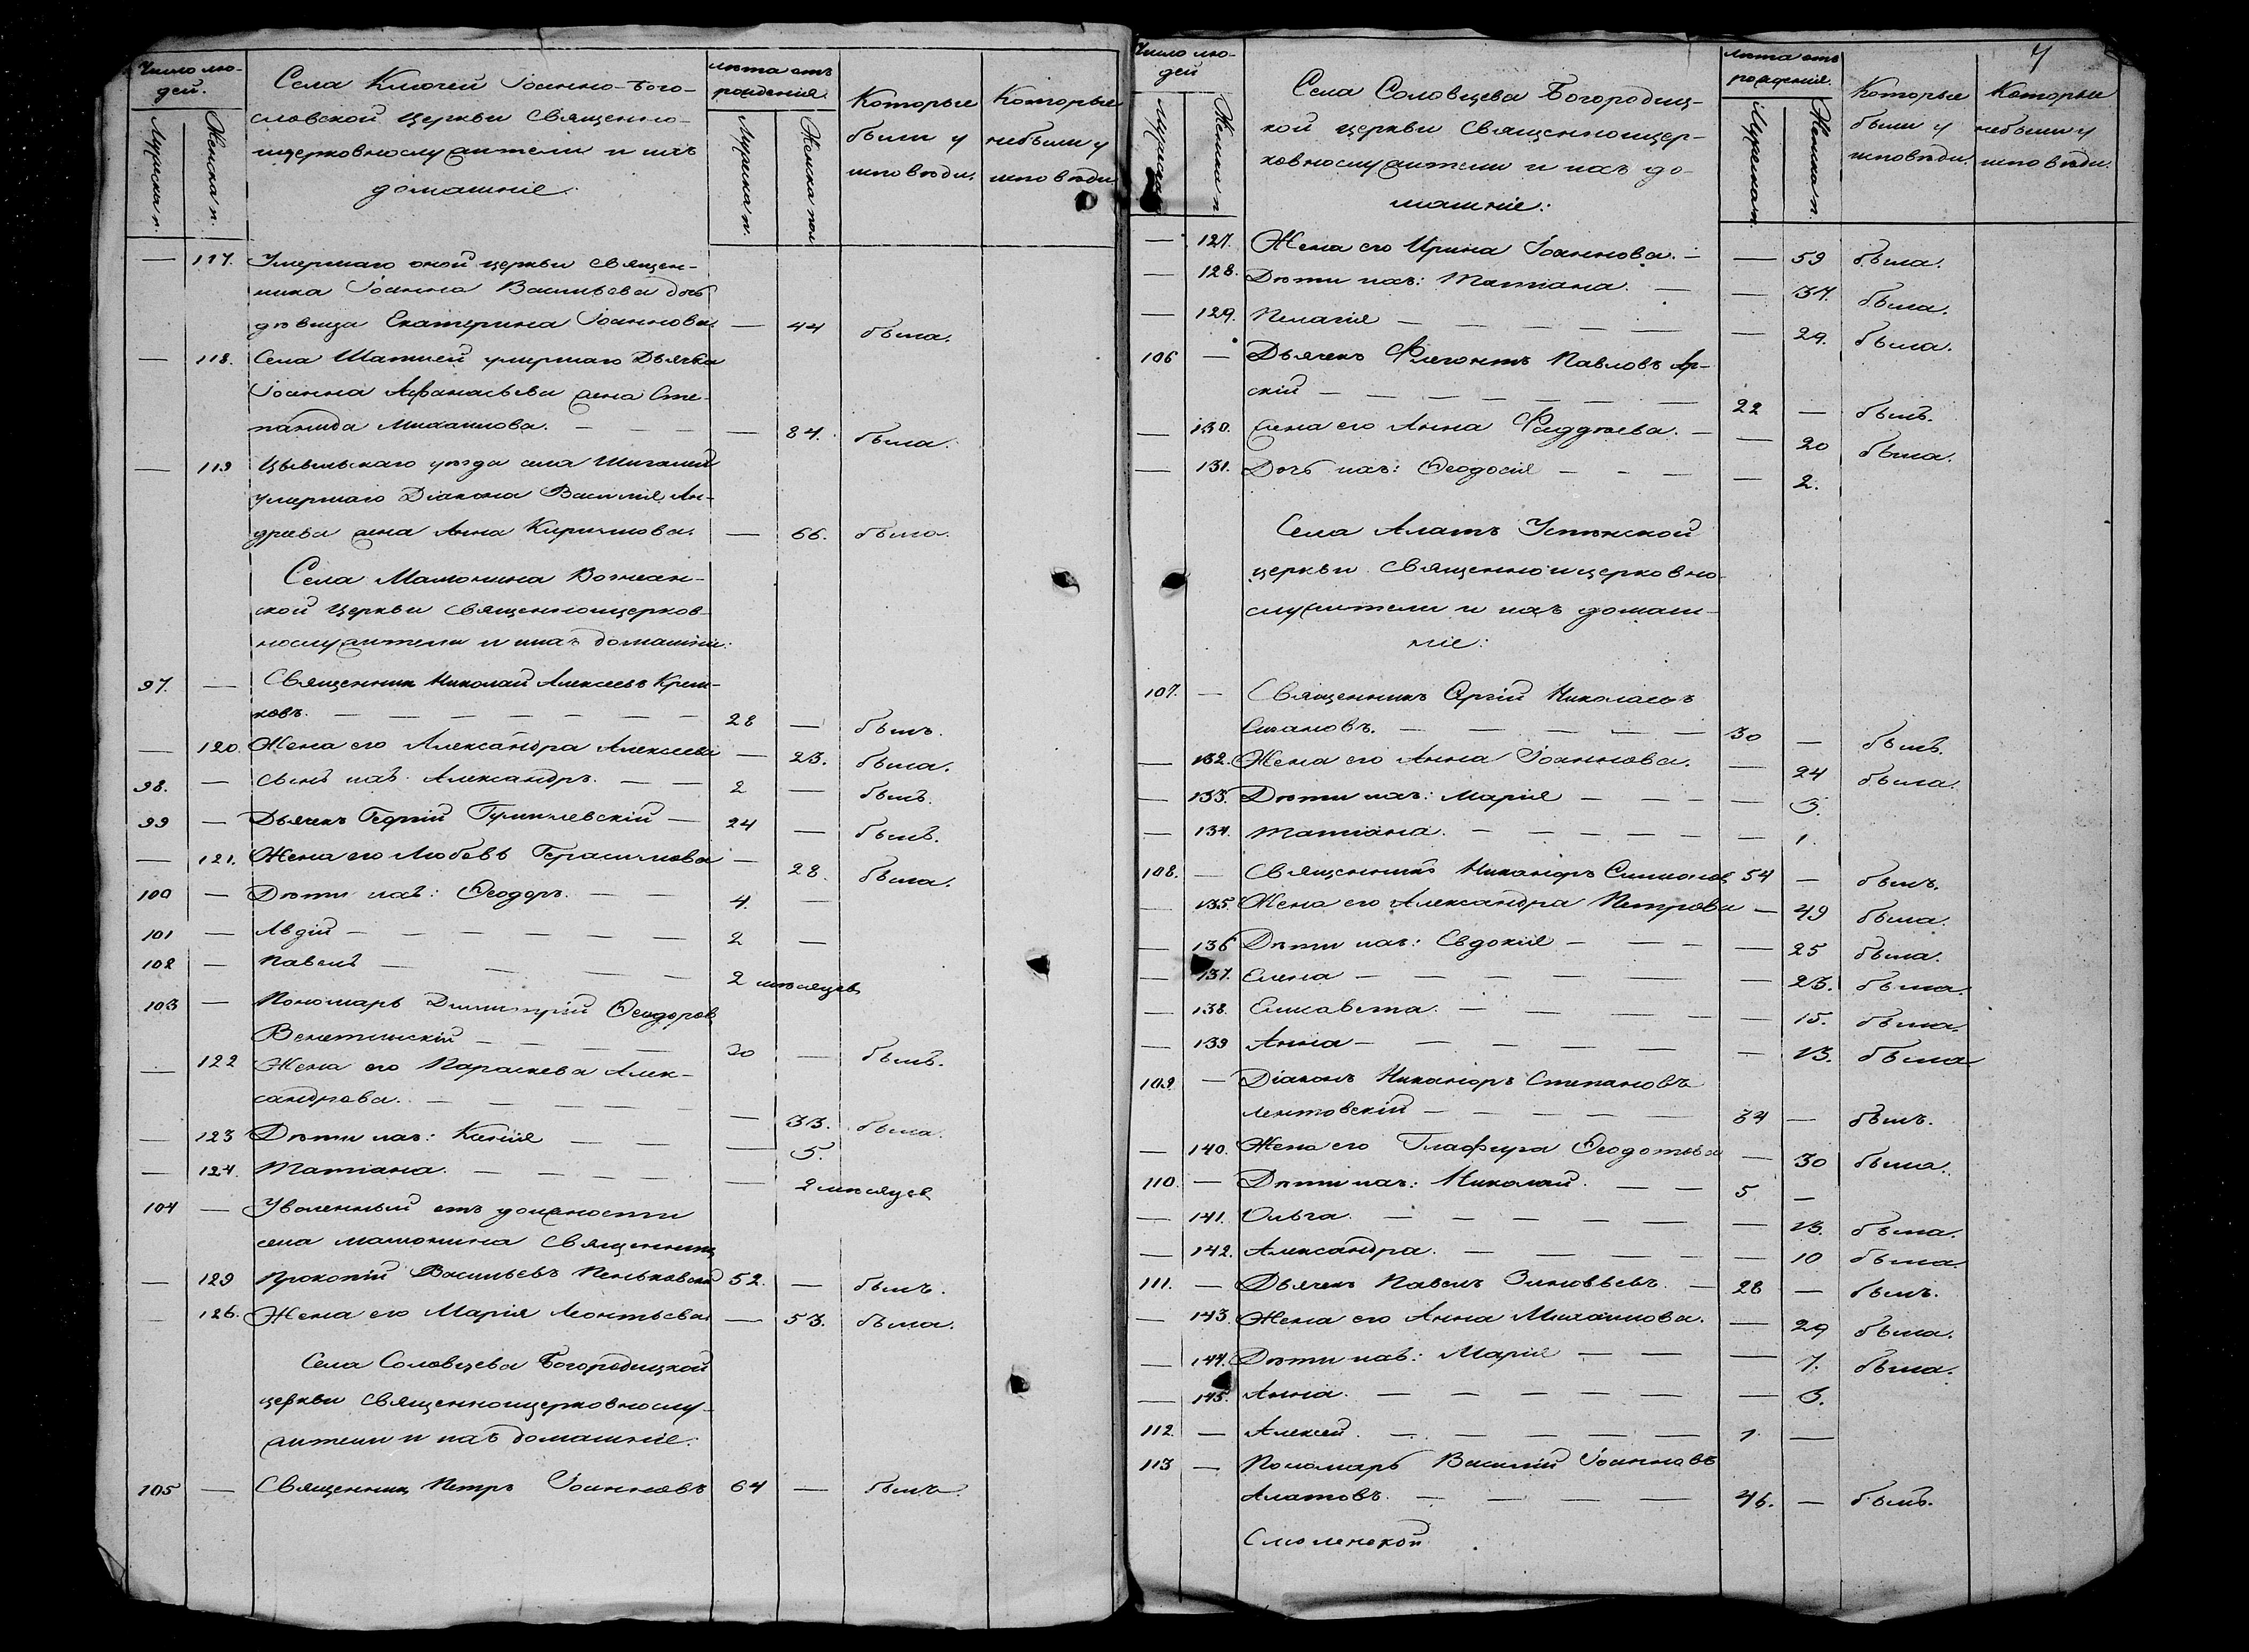 Число лю-
дей.
Мужеска п.
Женска п.
Села Ключей Іоанно-Бого-
словской церкви священно-
ицерковнослужители и ихъ
домашніе.
лѣта отъ
рожденія.
Мужеска п.
Женска пол
Которые
были у
исповѣди.
Которые
небыли у
исповѣди
— 117. Умершаго оной церкви священ-
ника Іоанна Васильева дочь
дѣвица Екатерина Іоаннова. — 44 была.
— 118. Села умершаго Дьячка
Іоанна Афанасьева жена Сте-
панида Михаилова. — — 84. была.
— 119 Цывильскаго уѣзда села
умершаго Діакона Василія Ан-
дреева жена Анна Кириллова. — 66. была.
Села Мамонина Вознесен-
ской церкви священноицерков-
нослужители и ихъ домашніе:
97. — Священник Николай Алексеевъ Креш-
ковъ. — 28 — былъ.
— 120. Жена его Александра Алексеева — 23. была.
98. — сынъ ихъ Александръ. — 2 — былъ.
99 — Дьячекъ Георгій Гумилевскій — 24 — былъ.
— 121. Жена его Любовь Герасимова — 28. была.
100 — Дѣти ихъ: Ѳеодоръ. — 4. —
101 — Авдій — 2 —
102 — Павелъ — 2 мѣсяцев
103 — Пономарь Димитрій Ѳеодоров
— 30 — былъ.
— 122 Жена его Параскева Алек-
сандрова. — — 33. была.
— 123 Дѣти ихъ: Ксенія — — 5.
— 124. Татіана. — — 2 мѣсяцев
104 — Уволенный отъ должности
села мамонина Священникъ
— 129 Прокопій Васильевъ Пеньковскій 52. — былъ.
— 126. Жена его Марія Леонтьева — 53. была.
Села Соловцева Богородицкой
церкви священноицерковнослу-
жители и ихъ домашніе:
105 — Священник Петръ Іоанновъ 64 — былъ.
Число лю-
дей
Мужеска
Женска п
Села Соловцева Богородиц-
кой церкви священноицер-
ковнослужители и ихъ до-
машніе:
лѣта отъ
рожденія.
Мужеска п.
Женска п.
Которые
были у
исповѣди.
Которые
небыли у
исповѣди.
— 127. Жена его Ирина Іоаннова. — — 59 была.
— 128. Дѣти ихъ: Татіана. — — 37. была.
— 129. Пелагія — — 29. была.
106 — Дьячекъ Флегонтъ Павловъ Ар-
скій — 22 — былъ.
— 130. Жена его Анна Фаддѣева. — — 20 была.
— 131. Дочь ихъ: Ѳеодосія — — 2.
Села Алатъ Успѣнской
церкви священноицерковно-
служители и ихъ домаш-
ніе:
107. — Священникъ Сергій Николаевъ
— 30 — былъ.
— 132. Жена его Анна Іоаннова. — 24 была.
— 133. Дѣти ихъ: Марія — — 3.
— 134. Татіана. — — 1.
108. — Священникъ Никаноръ Симионов 54 — былъ.
— 135. Жена его Александра Петрова — 49 была.
— 136 Дѣти ихъ: Евдокія — — 25 была.
— 137. Елена — — 23. была.
— 138. Елисавета. — — 15. была.
— 139 Анна — — 13. была
109 — Діаконъ Никаноръ Степановъ
Лентовскій — 34 — былъ.
— 140. Жена его Глафира Ѳеодотова — 30 была.
110. — Дѣти ихъ: Николай. — 5 —
— 141. Ольга. — — 13. была.
— 142. Александра. — — 10 была.
111. — Дьячекъ Павелъ Зиновьевъ. — 28 — былъ.
— 143. Жена его Анна Михаилова. — 29 была.
— 144. Дѣти ихъ: Марія — — 7. была.
— 145. Анна. — — 3.
112 — Алексей. — 1 —
113 — Пономарь Василій Іоанновъ
Алатовъ. — 46. — былъ.
Смоленской